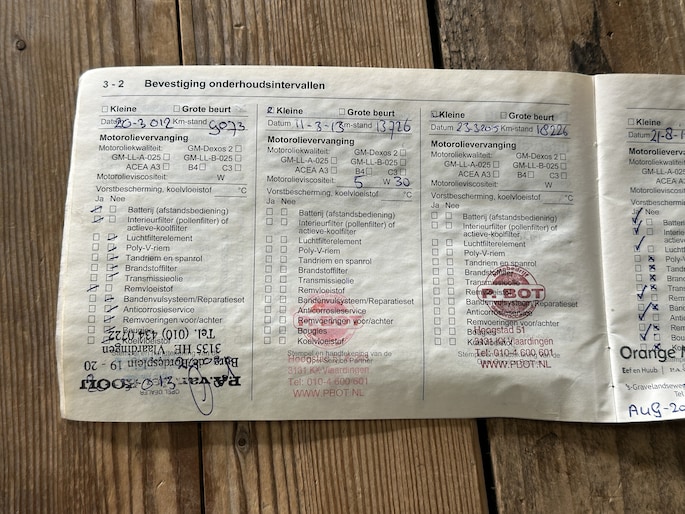 3 - 2 Bevestiging onderhoudsintervallen
Kleine Grote beurt
Datum 20-3 012 Km-stand 9073
Motorolievervanging
Motoroliekwaliteit: GM-Dexos 2
GM-LL-A-025 GM-LL-B-025
ACEA A3 B4 C3
Motorolieviscositeit: W
Vorstbescherming, koelvloeistof °C
Ja Nee
Batterij (afstandsbediening)
Interieurfilter (pollenfilter) of
actieve-koolfilter
Luchtfilterelement
Poly-V-riem
Tandriem en spanrol
Brandstoffilter
Transmissieolie
Remvloeistof
Bandenvulsysteem/Reparatieset
Anticorrosieservice
Remvoeringen voor/achter
Bougies
Koelvloeistof
Tel. (010) 434 0722
3135 HE Vlaardingen
19 - 20
P.A. van
OPEL DEALER
Kleine Grote beurt
Datum 11-3-13 Km-stand 13726
Motorolievervanging
Motoroliekwaliteit: GM-Dexos 2
GM-LL-A-025 GM-LL-B-025
ACEA A3 B4 C3
Motorolieviscositeit: 5 W 30
Vorstbescherming, koelvloeistof °C
Ja Nee
Batterij (afstandsbediening)
Interieurfilter (pollenfilter) of
actieve-koolfilter
Luchtfilterelement
Poly-V-riem
Tandriem en spanrol
Brandstoffilter
Transmissieolie
Remvloeistof
Bandenvulsysteem/Reparatieset
Anticorrosieservice
Remvoeringen voor/achter
Bougies
Koelvloeistof
Stempel en handtekening van de
Service Partner
3131 KK Vlaardingen
Tel: 010-4 600 601
WWW.PBOT.NL
Kleine Grote beurt
Datum Km-stand 18226
Motorolievervanging
Motoroliekwaliteit: GM-Dexos 2
GM-LL-A-025 GM-LL-B-025
ACEA A3 B4 C3
Motorolieviscositeit: W
Vorstbescherming, koelvloeistof °C
Ja Nee
Batterij (afstandsbediening)
Interieurfilter (pollenfilter) of
actieve-koolfilter
Luchtfilterelement
Poly-V-riem
Tandriem en spanrol
Brandstoffilter
Transmissieolie
Remvloeistof
P. BOT
Bandenvulsysteem/Reparatieset
Anticorrosieservice
Remvoeringen voor/achter
Hoogstad 51
3131 KK Vlaardingen
Tel: 010-4 600 601
WWW.PBOT.NL
Kleine
Datum
Motorolievervanging
Motoroliekwaliteit:
GM-LL-A-025
ACEA A3
Motorolieviscositeit:
Vorstbescherming, koel
Ja Nee
Orange
's-Gravelandseweg
Tel